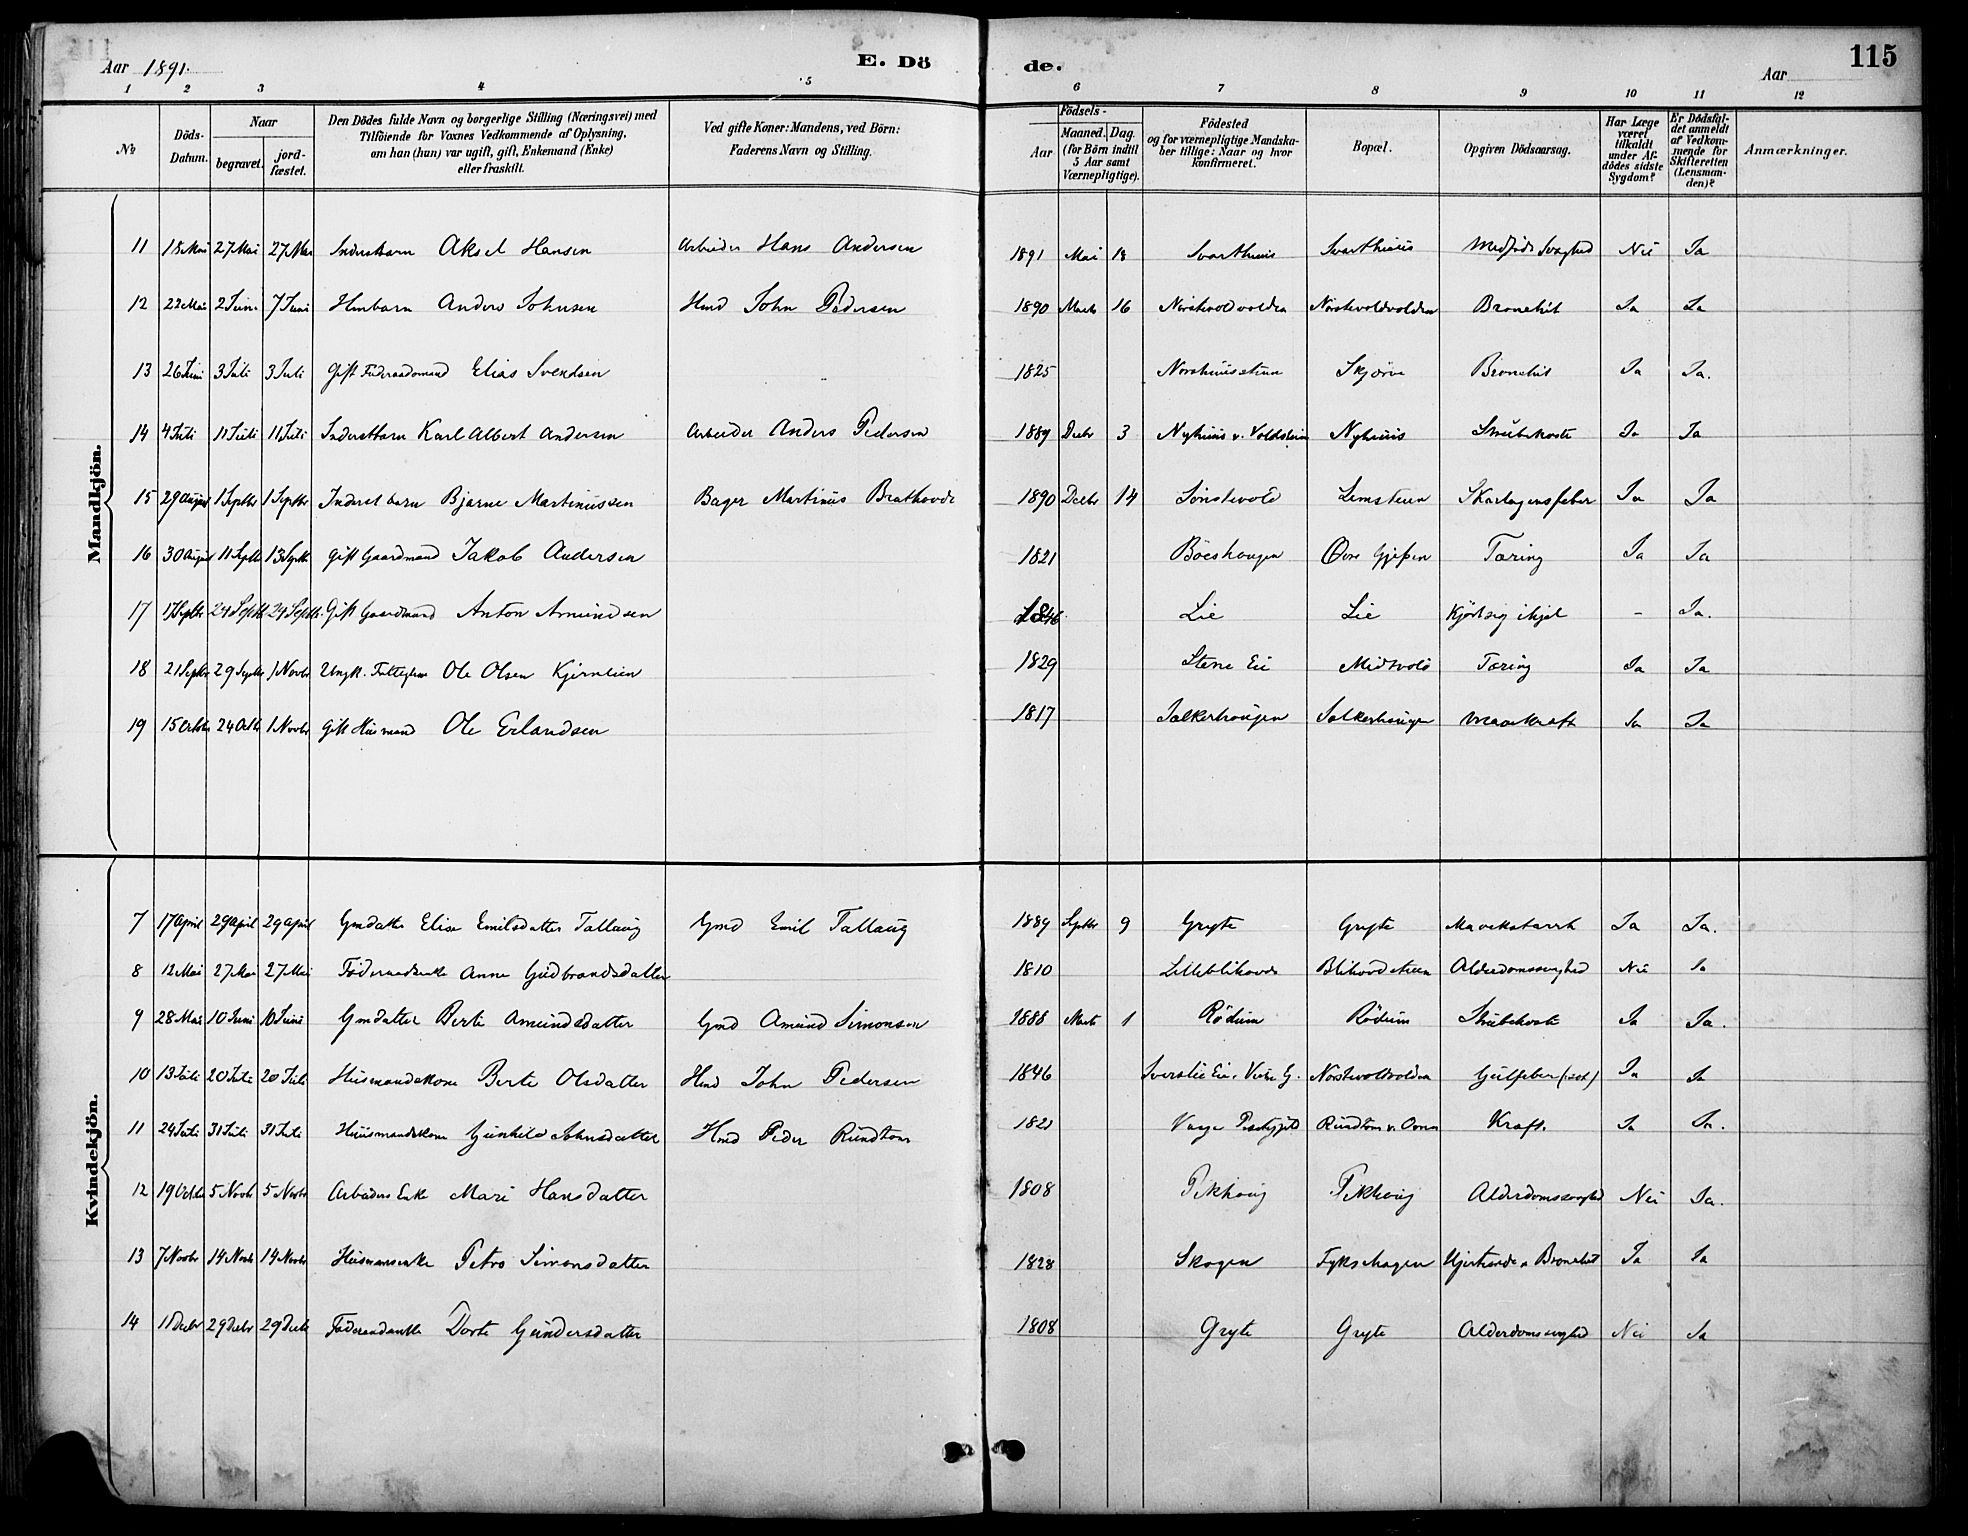 Aar 1891.
E. Döde.
Aar
115
1 2 3 4 5 6 7 8 9 10 11 12
№
Döds-Datum.
Naar
begravet.
jord-fæstet.
Den Dödes fulde Navn og borgerlige Stilling (Næringsvei) med
Tilföiende for Voxnes Vedkommende af Oplysning,
om han (hun) var ugift, gift, Enkemand (Enke)
eller fraskilt.
Ved gifte Koner: Mandens, ved Börn:
Faderens Navn og Stilling.
Födsels-
Aar
Maaned. Dag.
(for Börn indtil
5 Aar samt
Værnepligtige).
Födested
og for værnepligtige Mandska-
ber tillige: Naar og hvor
konfirmeret.
Bopæl.
Opgiven Dödsaarsag.
Har Læge
været
tilkaldt
under Af-
dödes sidste
Sygdom?
Er Dödsfal-
det anmeldt
af Vedkom-
mende for
Skifteretten
(Lensman-
den)?
Anmærkninger.
Mandkjön.
11 18 Mai 27 Mai 27 Mai Inderstbarn Aksel Hansen Arbeider Hans Andersen 1891 Mai 18 Svarthuus Svarthuus Medfödt Svaghed Nei Ja
12 22 Mai 2 Juni 7 Juni Hmbarn Anders Johnsen Hmd John Pedersen 1890 Marts 16 Norstevoldvolden Norstevoldvolden Bronchit Ja Ja
13 26 Juni 3 Juli 3 Juli Gift Föderaadsmand Elias Svendsen 1825 Norshuusstuen Skjörve Bronchit Ja Ja.
14 4 Juli 11 Juli 11 Juli Inderstbarn Karl Albert Andersen Arbeider Anders Pedersen 1889 Decbr 3 Nyhuus v. Voldstuen Nyhuus Strubehoste Ja Ja
15 29 August 1 Septbr 1 Septbr Inderst barn Bjarne Martinussen Bager Martinus Brathovde 1890 Decbr 14 Sönstevold Lemstuen Skarlagensfeber Ja Ja
16 30 August 11 Septbr 13 Septbr Gift Gaardmand Jakob Andersen 1821 Böeshaugen Övre Gjefsen Tæring Ja Ja
17 17 Septbr 24 Septbr 24 Septbr. Gift Gaardmand Anton Amundsen 1846 Lie Lie Kjört sig ihjel - Ja.
18 21 Septbr 29 Septbr 1 Novbr Ungk. Fattiglem Ole Olsen Kjernlien 1829 Stene Eie Midtvold Tæring Ja Ja
19 15 Octbr 24 Octbr 1 Novbr Gift Husmand Ole Erlandsen 1817 Salkerhaugen Salkerhaugen Mavekræft Ja Ja
Kvindekjön.
7 17 April 29 April 29 April Gmdatter Elise Emilsdatter Tallaug Gmd Emil Tallaug 1889 Septbr 9 Gryte Gryte Mavekatarrh Ja Ja.
8 12 Mai 27 Mai 27 Mai Föderaadsenke Anne Gudbrandsdatter 1810 Lilleblihovde Blihovdstuen Alderdomssvaghed Nei Ja
9 28 Mai 10 Juni 10 Juni Gmdatter Berte Amundsdatter Gmd Amund Simonsen 1888 Marts 1 Rödum Rödum Strubehoste Ja Ja.
10 13 Juli 20 Juli 20 Juli Husmandskone Berte Olsdatter Hmd John Pedersen 1846 Sverslie Eie, Vestre G. Norstevoldvolden Gulfeber Ja Ja
11 24 Juli 31 Juli 31 Juli Husmandskone Gunhild Johnsdatter Hmd Peder Rundtom 1821 Vaage Præstegjeld Rundtom Kræft. Ja Ja.
12 19 Octbr 5 Novbr 5 Novbr Arbeiders Enke Mari Hansdatter 1808 Pikhaug Pikhaug Alderdomssvaghed Nei Ja.
13 7 Novbr 14 Novbr 14 Novbr Husmandsenke Petra Simonsdatter 1828 Skogen Fykshagen Bronchit Ja Ja
14 11 Decbr 29 Decbr 29 Decbr Föderaadsenke Dorte Gundersdatter 1808 Gryte Gryte Alderdomssvaghed Nei Ja